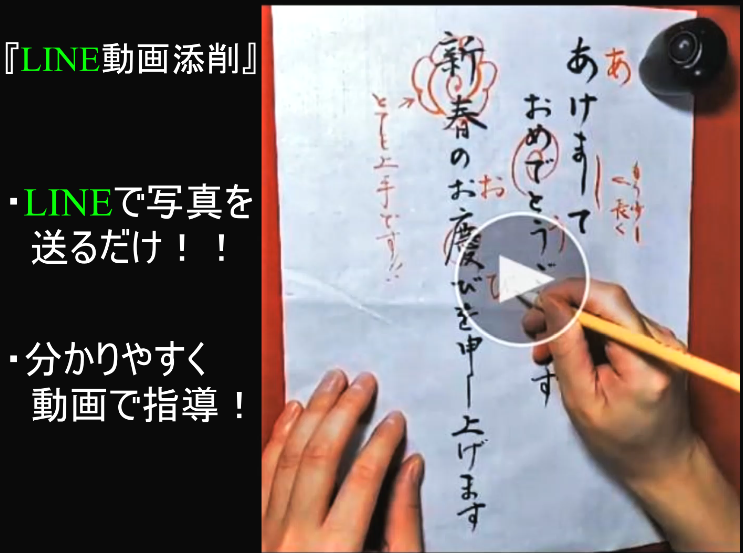 『LINE動画添削』
・LINEで写真を
送るだけ！！
・分かりやすく
動画で指導！
あ
あけまして
もう少し
長く
おめでとう
す
う
お
び
新春のお慶びを申し上げます
とても上手です!!